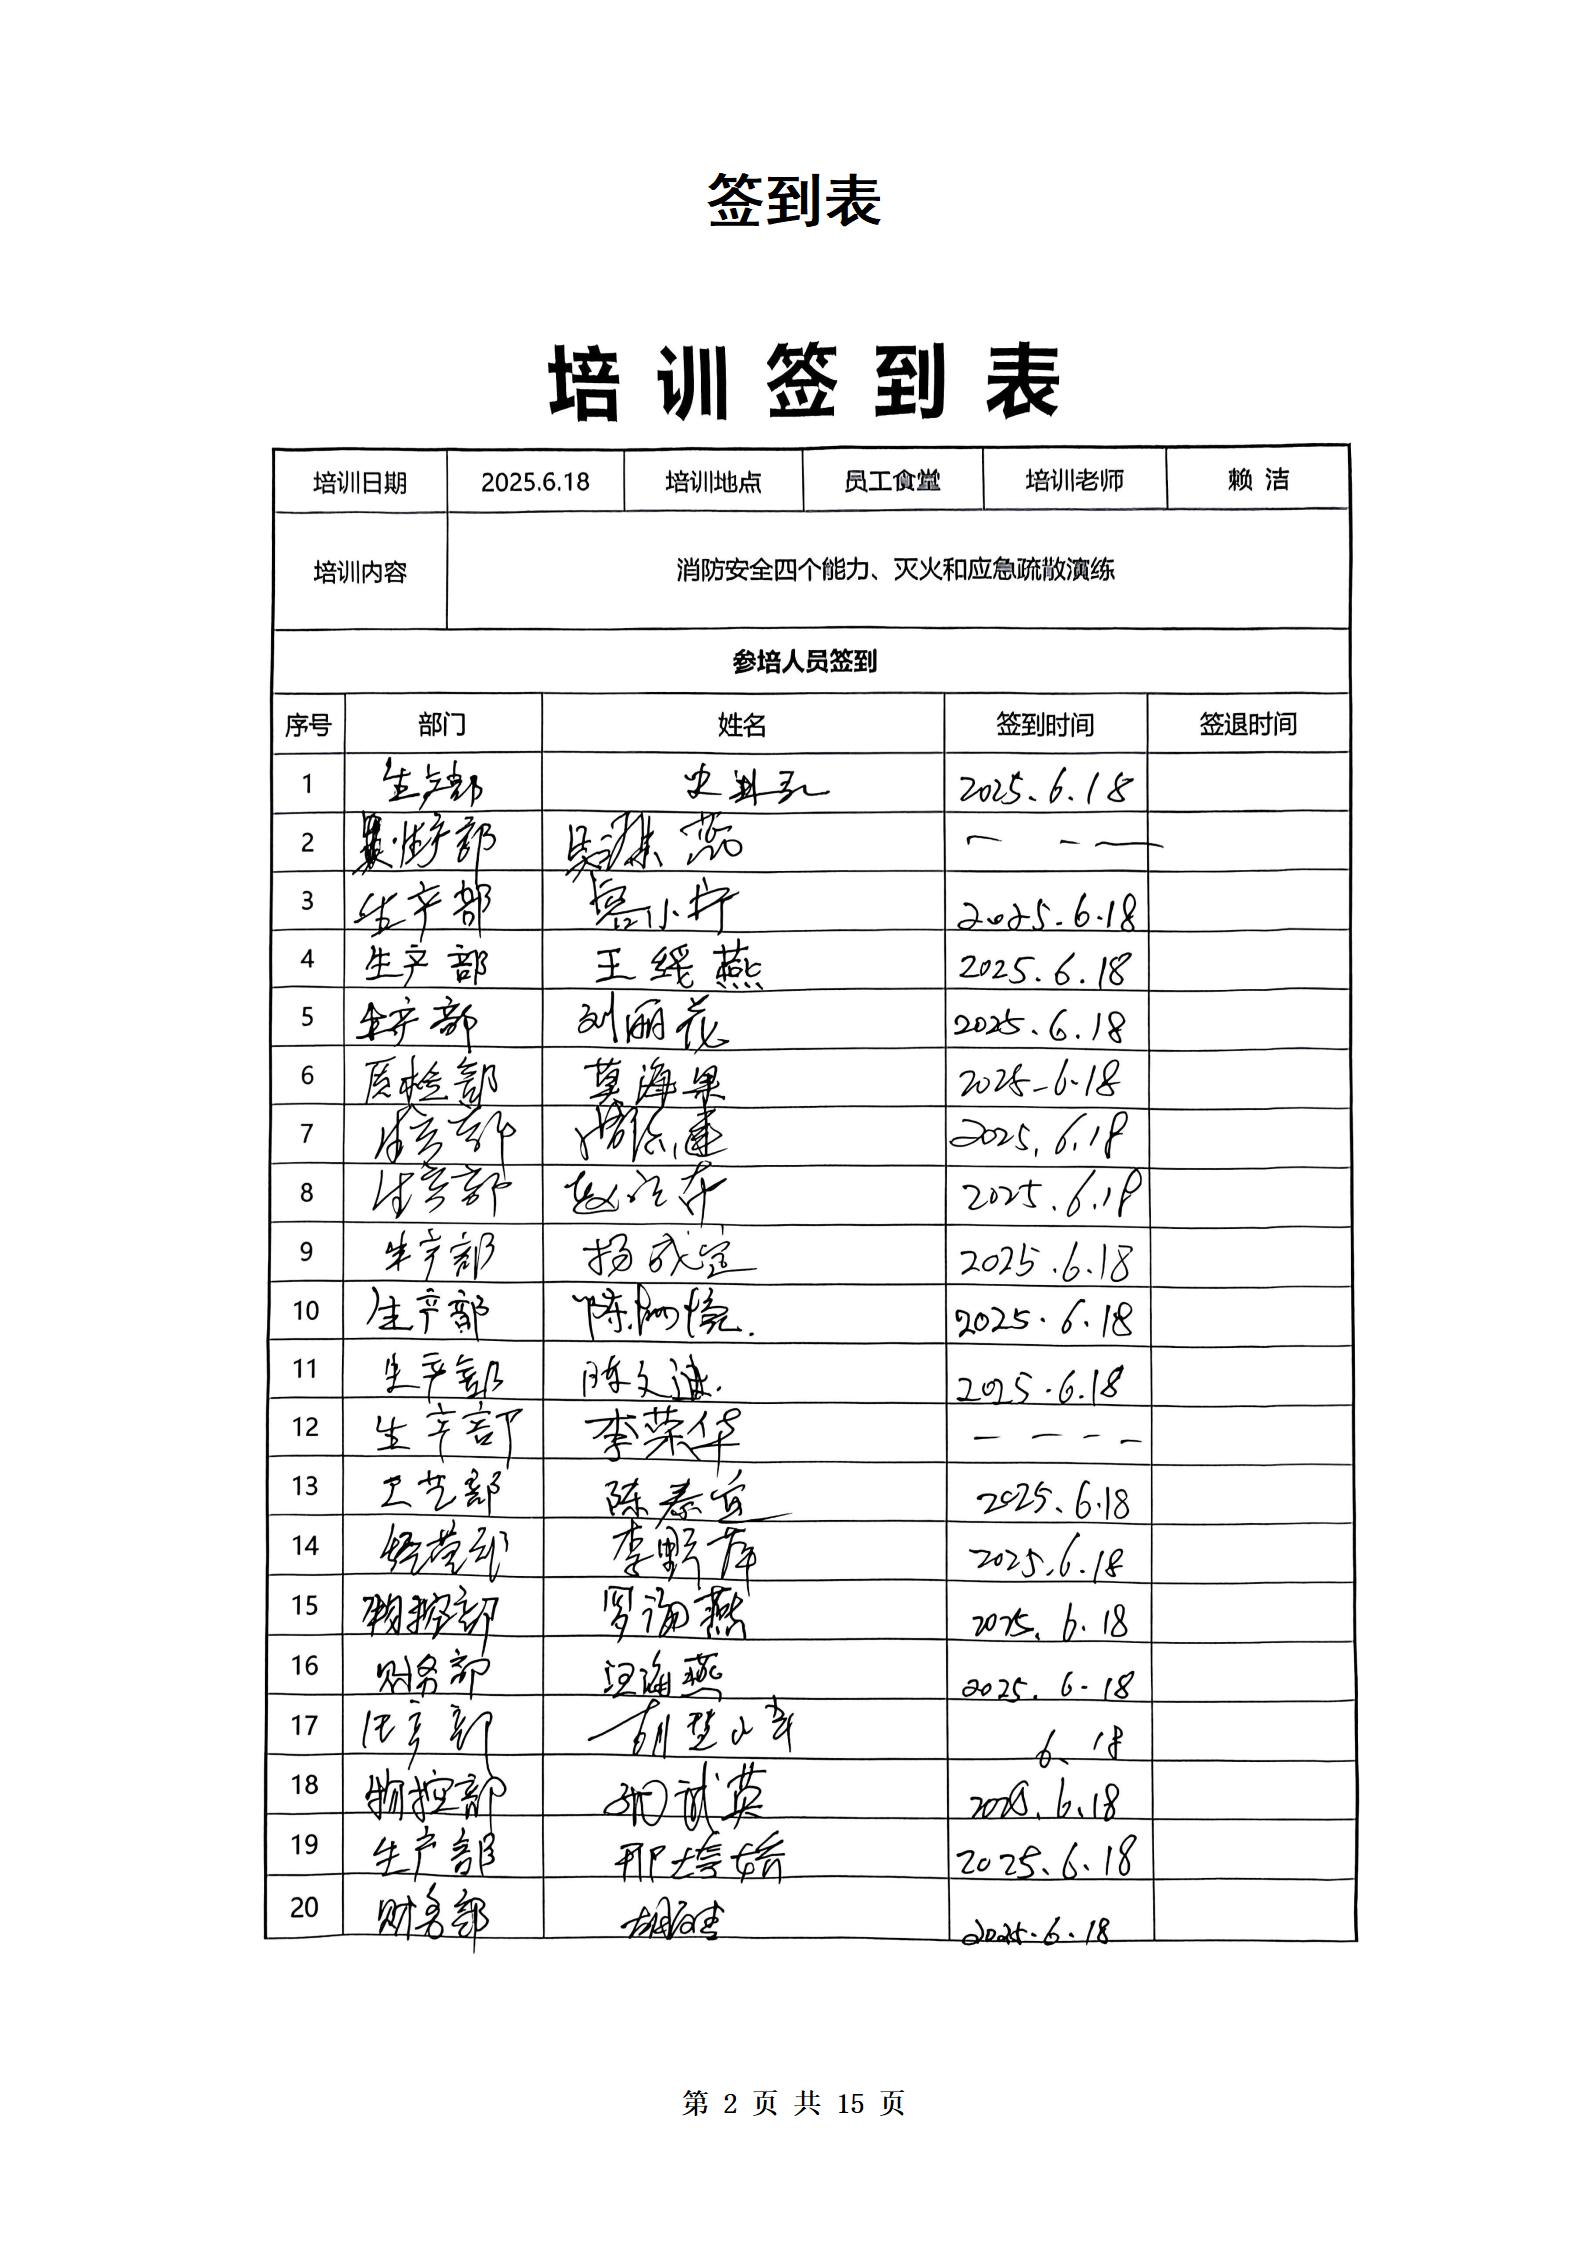 签到表
培训签到表
培训日期 2025.6.18 培训地点 员工食堂 培训老师 赖 洁
培训内容 消防安全四个能力、灭火和应急疏散演练
参培人员签到
序号 部门 姓名 签到时间 签退时间
1 生产部 2025.6.18
2 生产部 — — —
3 生产部 2025.6.18
4 生产部 王 燕 2025.6.18
5 生产部 刘丽花 2025.6.18
6 质检部 莫海果 2025.6.18
7 生产部 2025.6.18
8 生产部 2025.6.18
9 生产部 杨成宣 2025.6.18
10 生产部 陈 2025.6.18
11 生产部 陈文 2025.6.18
12 生产部 李荣华 — — — —
13 工艺部 陈泰宜 2025.6.18
14 经营部 李 2025.6.18
15 物控部 罗海燕 2025.6.18
16 财务部 汪海燕 2025.6.18
17 生产部 6.18
18 物控部 武英 2025.6.18
19 生产部 邢 2025.6.18
20 财务部 胡 2025.6.18
第 2 页 共 15 页